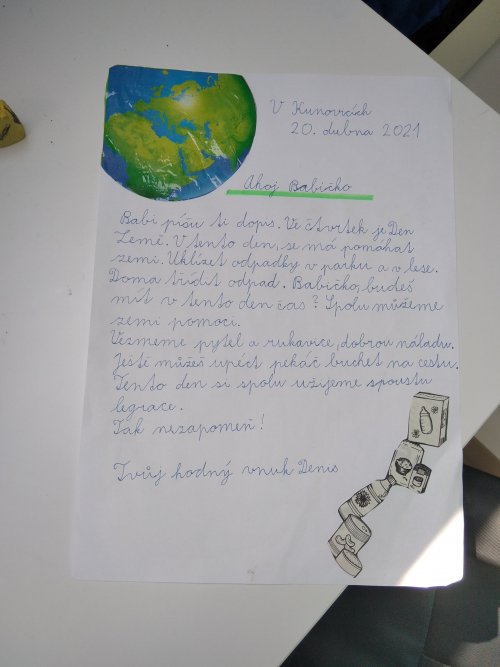 V Kunovicích
20. dubna 2021
Ahoj Babičko
Babi píšu ti dopis. Ve čtvrtek je Den
Země. V tento den, se má pomáhat
zemi. Uklízet odpadky v parku a v lese.
Doma třídit odpad. Babičko, budeš
mít v tento den čas? Spolu můžeme
zemi pomoci.
Vezmeme pytel a rukavice, dobrou náladu.
Ještě můžeš upéct pekáč buchet na cestu.
Tento den si spolu užijeme spoustu
legrace.
Tak nezapomeň!
Tvůj hodný vnuk Denis